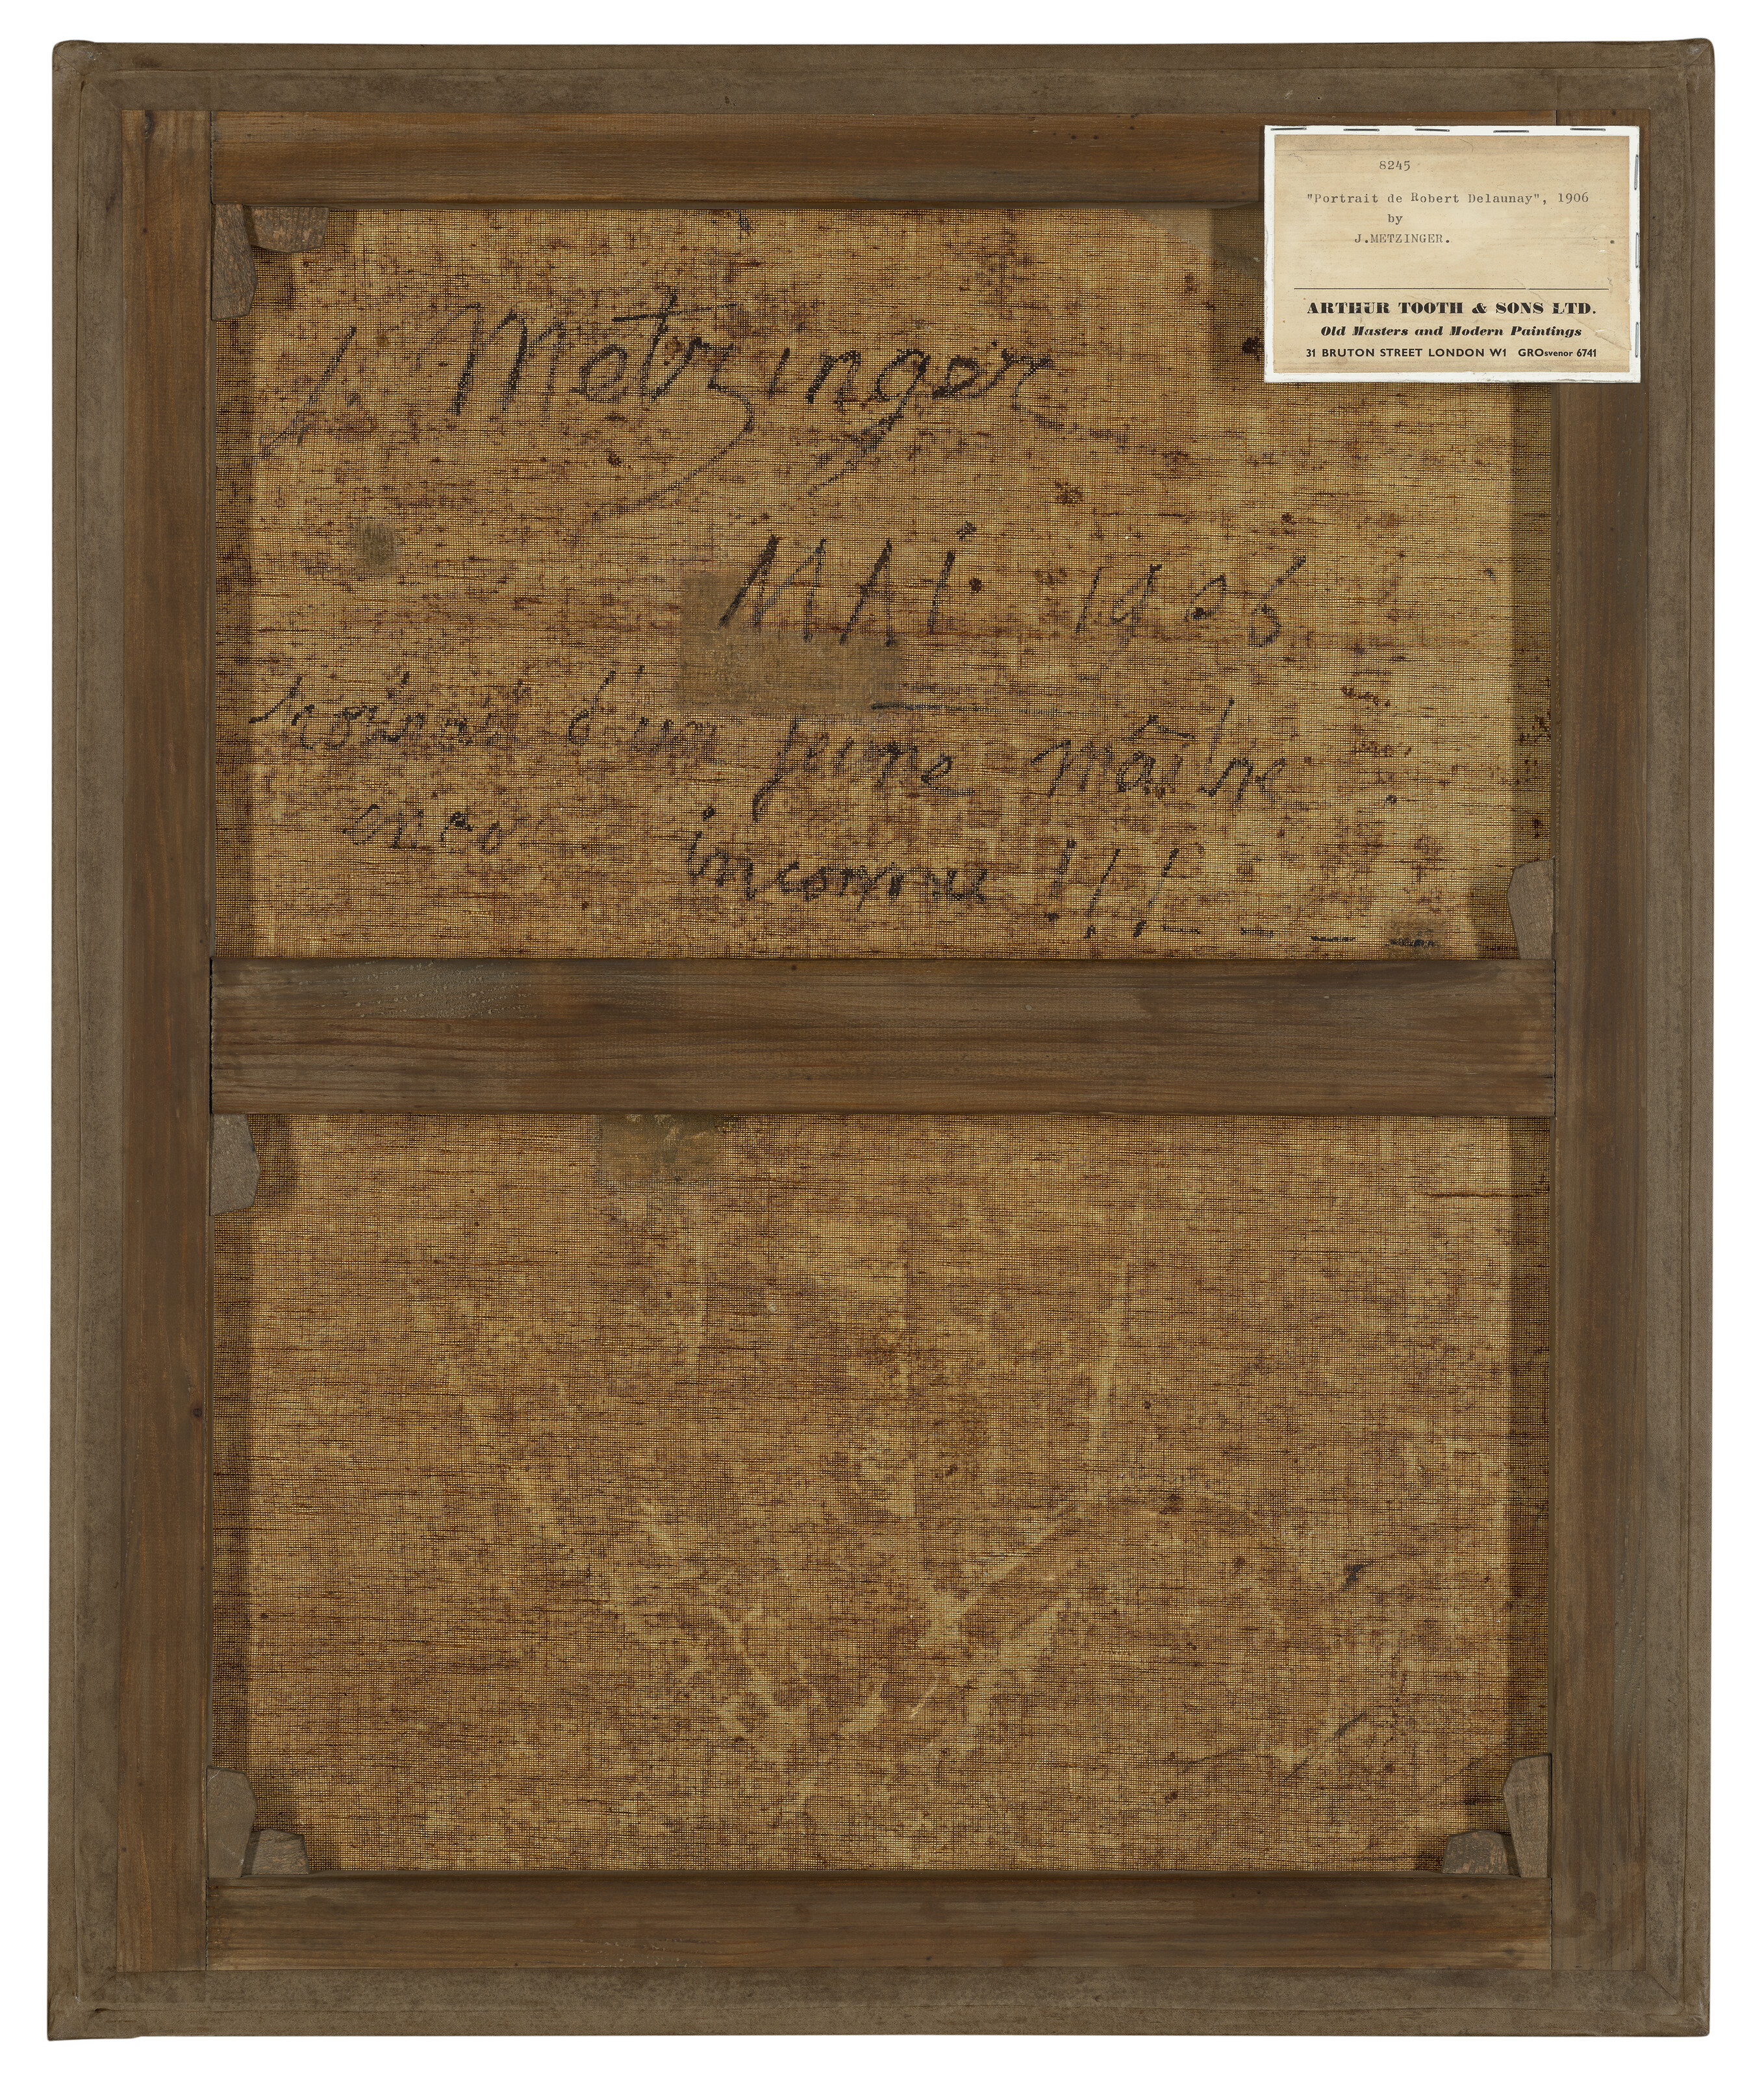 8245
"Portrait de Robert Delaunay", 1906
by
J.METZINGER.
ARTHUR TOOTH & SONS LTD.
Old Masters and Modern Paintings
31 BRUTON STREET LONDON W1 GROsvenor 6741
J Metzinger
MAI 1906
Portrait d'un jeune maître
inconnu !!!